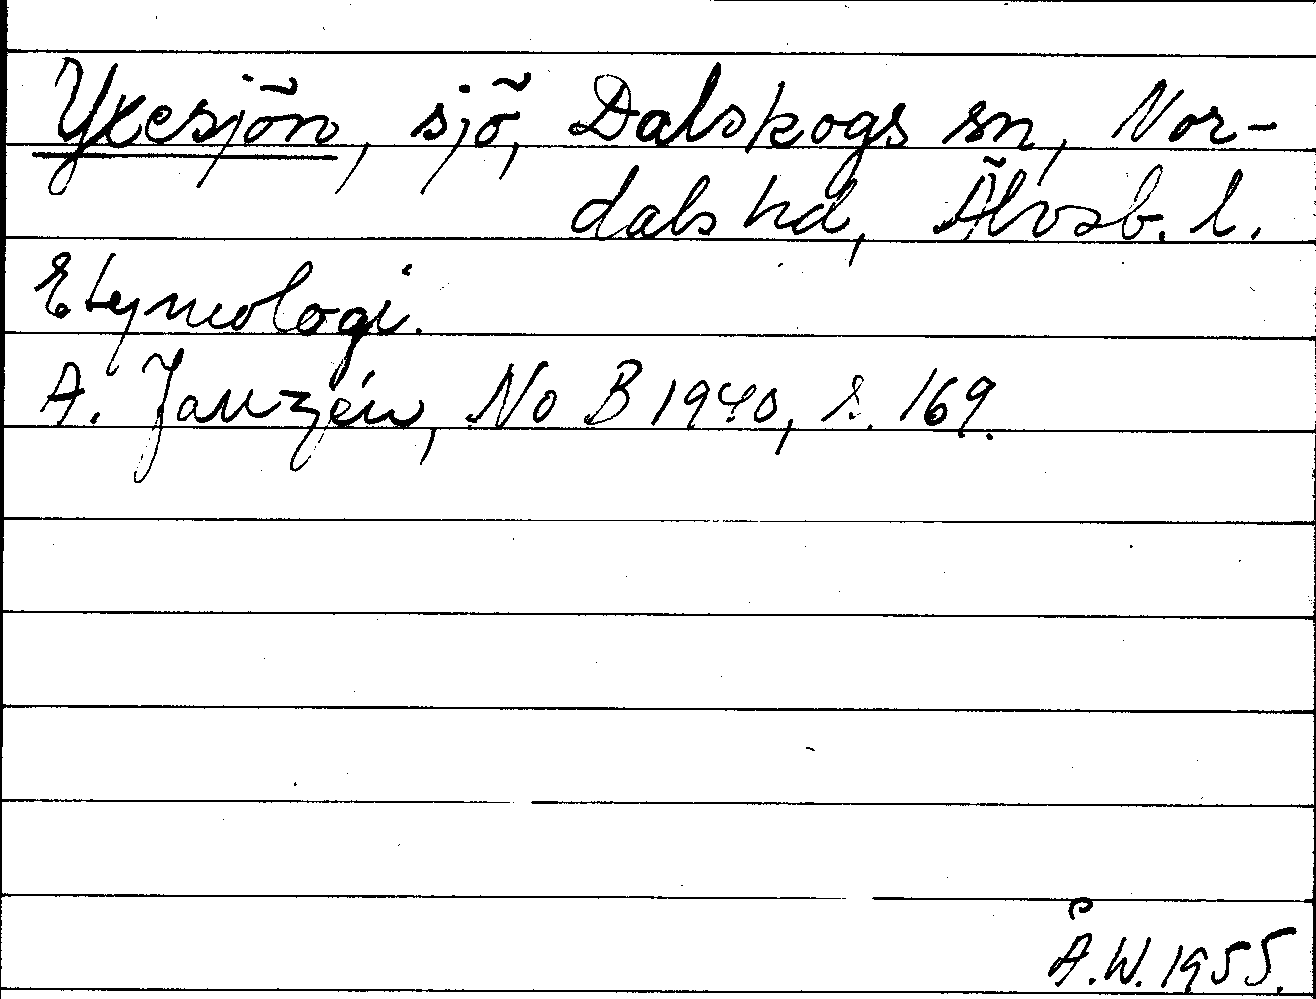 Yxesjön, sjö, Dalskogs sn, Nor-
dals hd, Älvsb. l.
Etymologi.
A. Janzén, NoB 1940, s. 169.
Å.W. 1955.